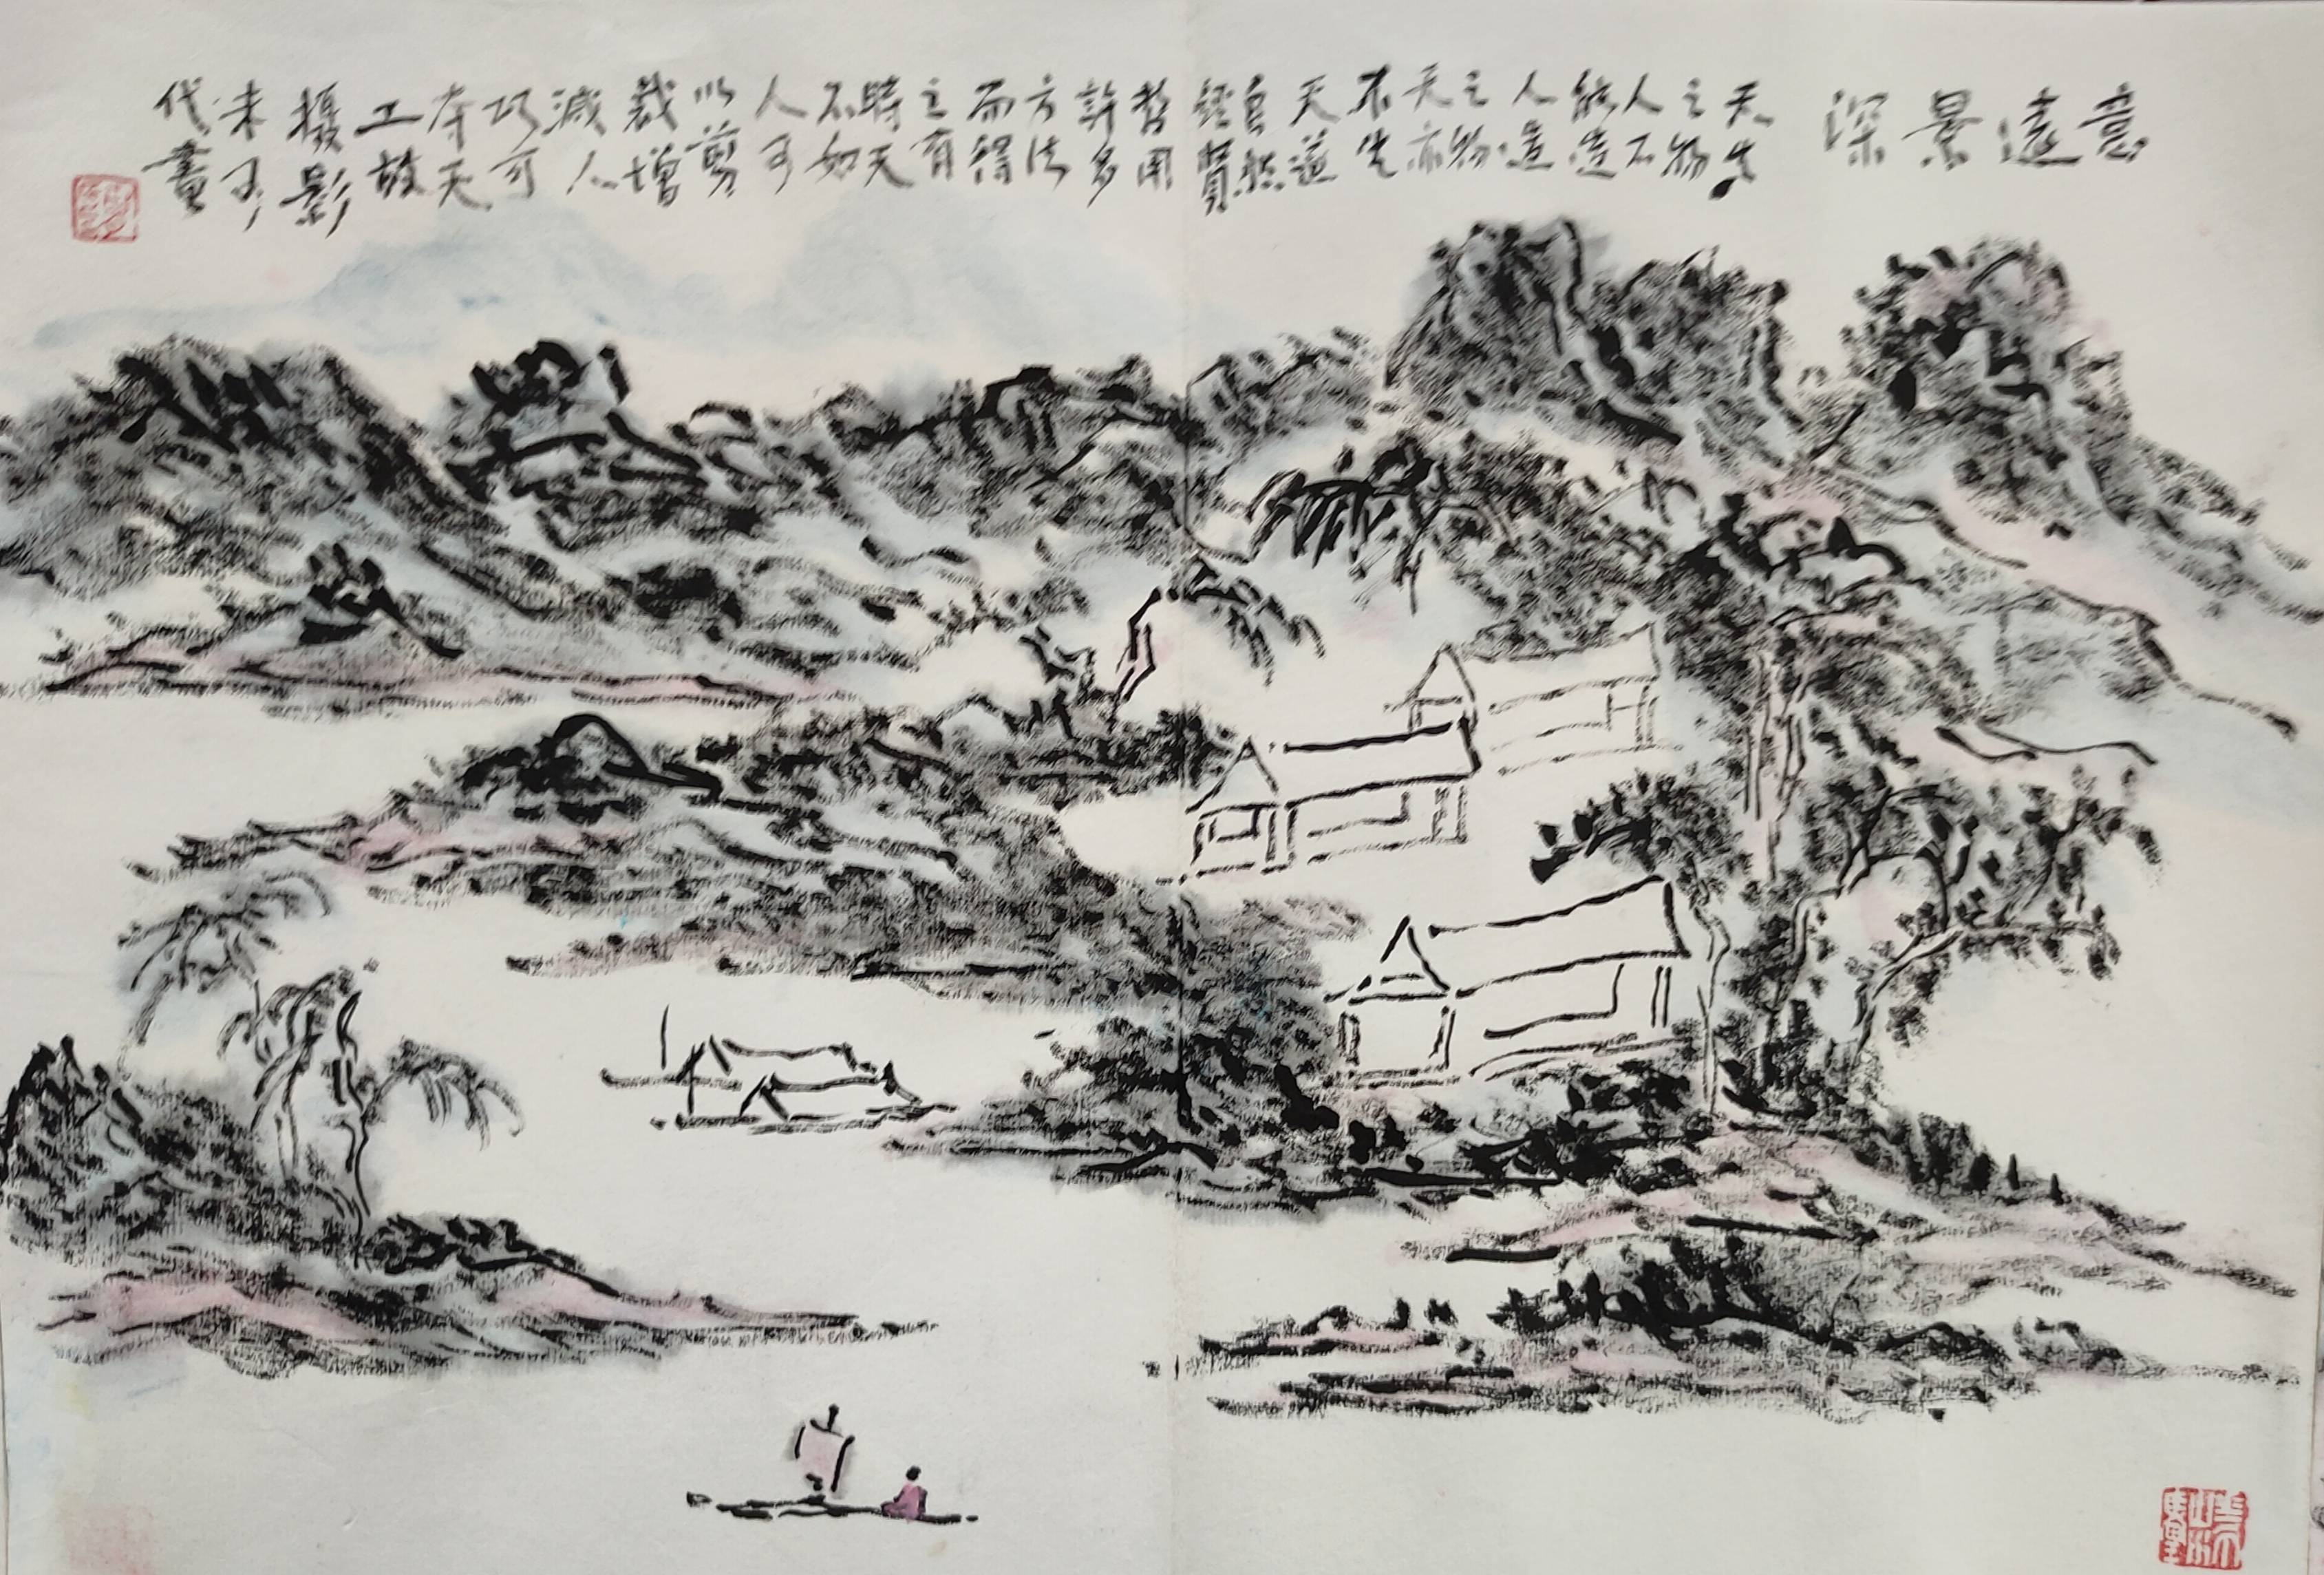 意遠景深
天生
之物
人不
能造
人造
之物
天亦
不生
天道
自然
經賢
哲用
許多
方法
而得
之有
時天
不如
人可
以剪
裁增
減人
巧可
夺天
工故
摄影
未可
代畫